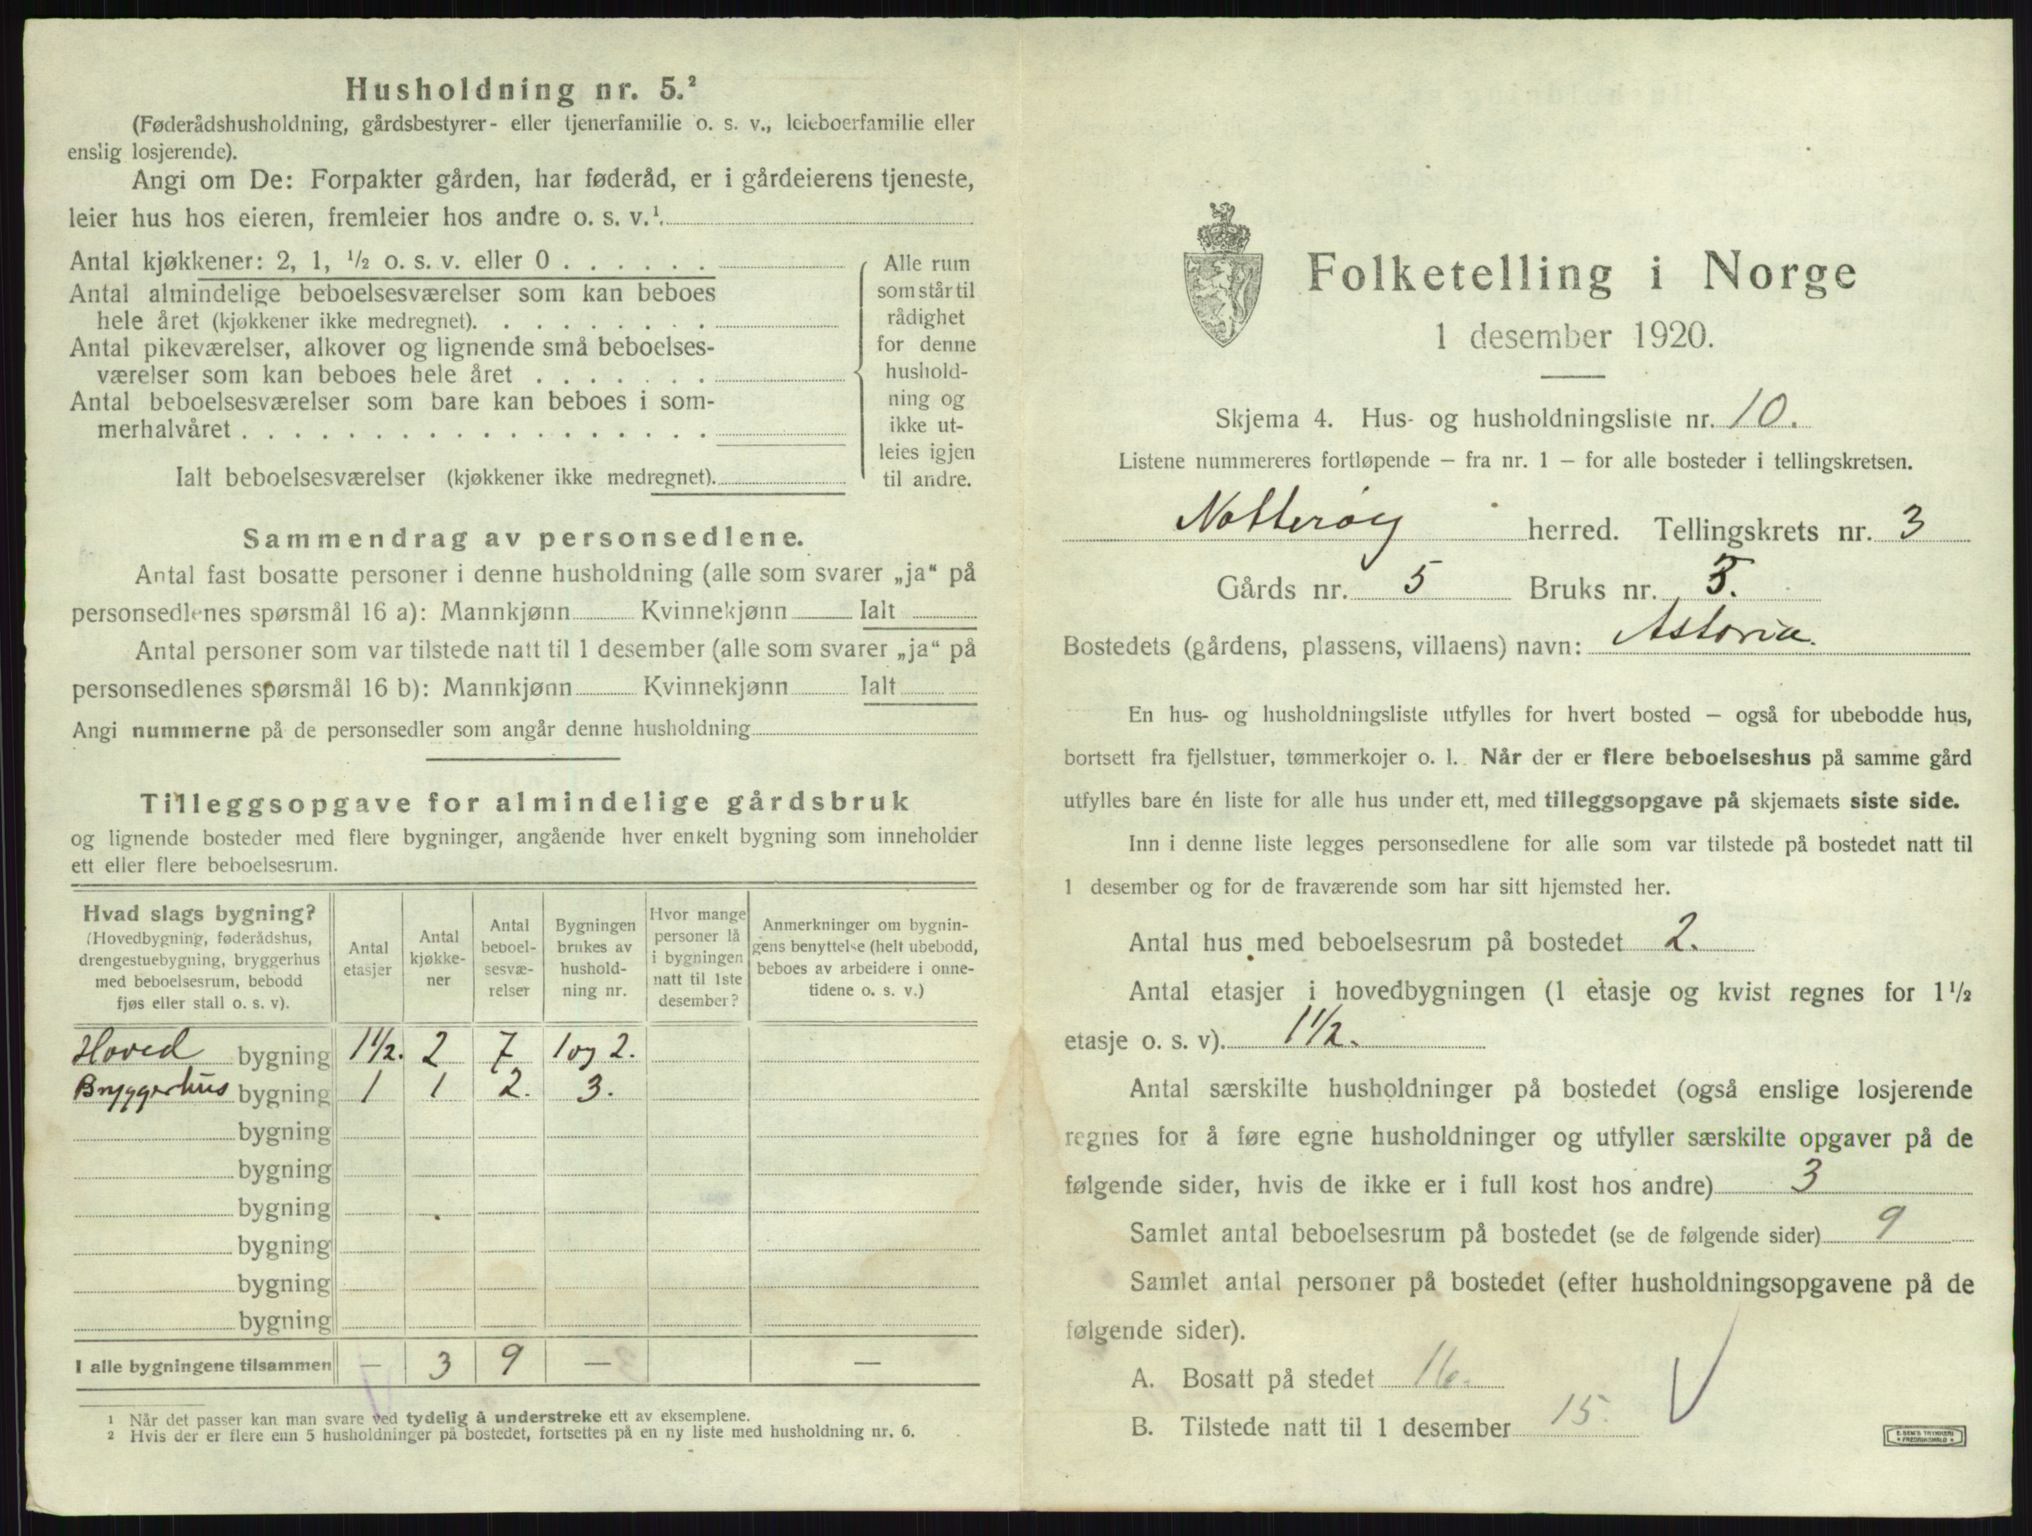 Husholdning nr. 5.²
(Føderådshusholdning, gårdsbestyrer- eller tjenerfamilie o. s. v., leieboerfamilie eller
enslig losjerende).
Angi om De: Forpakter gården, har føderåd, er i gårdeierens tjeneste,
leier hus hos eieren, fremleier hos andre o. s. v.¹
Antal kjøkkener: 2, 1, ½ o. s. v. eller 0 . . . . . .
Antal almindelige beboelsesværelser som kan beboes
hele året (kjøkkener ikke medregnet). . . . . . . . .
Antal pikeværelser, alkover og lignende små beboelses-
værelser som kan beboes hele året . . . . . . .
Antal beboelsesværelser som bare kan beboes i som-
merhalvåret . . . . . . . . . . . . . . . . . .
Ialt beboelsesværelser (kjøkkener ikke medregnet).
Alle rum
som står til
rådighet
for denne
hushold-
ning og
ikke ut-
leies igjen
til andre.
Sammendrag av personsedlene.
Antal fast bosatte personer i denne husholdning (alle som svarer „ja“ på
personsedlenes spørsmål 16 a): Mannkjønn Kvinnekjønn Ialt
Antal personer som var tilstede natt til 1 desember (alle som svarer „ja“ på
personsedlenes spørsmål 16 b): Mannkjønn Kvinnekjønn Ialt
Angi nummerne på de personsedler som angår denne husholdning
Tilleggsopgave for almindelige gårdsbruk
og lignende bosteder med flere bygninger, angående hver enkelt bygning som inneholder
ett eller flere beboelsesrum.
Hvad slags bygning?
(Hovedbygning, føderådshus,
drengestuebygning, bryggerhus
med beboelsesrum, bebodd
fjøs eller stall o. s. v).
Antal
etasjer
Antal
kjøkke-
ner
Antal
beboel-
sesvæ-
relser
Bygningen
brukes av
hushold-
ning nr.
Hvor mange
personer lå
i bygningen
natt til 1ste
desember?
Anmerkninger om bygnin-
gens benyttelse (helt ubebodd,
beboes av arbeidere i onne-
tidene o. s. v.)
Hoved bygning 1½. 2 7 1 og 2.
Bryggerhus bygning 1 1 2. 3.
bygning
bygning
bygning
bygning
bygning
bygning
I alle bygningene tilsammen — 3 9 — —
¹ Når det passer kan man svare ved tydelig å understreke ett av eksemplene.
² Hvis der er flere enn 5 husholdninger på bostedet, fortsettes på en ny liste med husholdning nr. 6.
Folketelling i Norge
1 desember 1920.
Skjema 4. Hus- og husholdningsliste nr. 10.
Listene nummereres fortløpende – fra nr. 1 – for alle bosteder i tellingskretsen.
Nøtterøy herred. Tellingskrets nr. 3
Gårds nr. 5 Bruks nr. 5.
Bostedets (gårdens, plassens, villaens) navn: Astoria.
En hus- og husholdningsliste utfylles for hvert bosted – også for ubebodde hus,
bortsett fra fjellstuer, tømmerkojer o. l. Når der er flere beboelseshus på samme gård
utfylles bare én liste for alle hus under ett, med tilleggsopgave på skjemaets siste side.
Inn i denne liste legges personsedlene for alle som var tilstede på bostedet natt til
1 desember og for de fraværende som har sitt hjemsted her.
Antal hus med beboelsesrum på bostedet 2.
Antal etasjer i hovedbygningen (1 etasje og kvist regnes for 1½
etasje o. s. v). 1½.
Antal særskilte husholdninger på bostedet (også enslige losjerende
regnes for å føre egne husholdninger og utfyller særskilte opgaver på de
følgende sider, hvis de ikke er i full kost hos andre) 3
Samlet antal beboelsesrum på bostedet (se de følgende sider) 9
Samlet antal personer på bostedet (efter husholdningsopgavene på de
følgende sider).
A. Bosatt på stedet 16.
B. Tilstede natt til 1 desember 15.
E. SEM'S TRYKKERI
FREDRIKSHALD